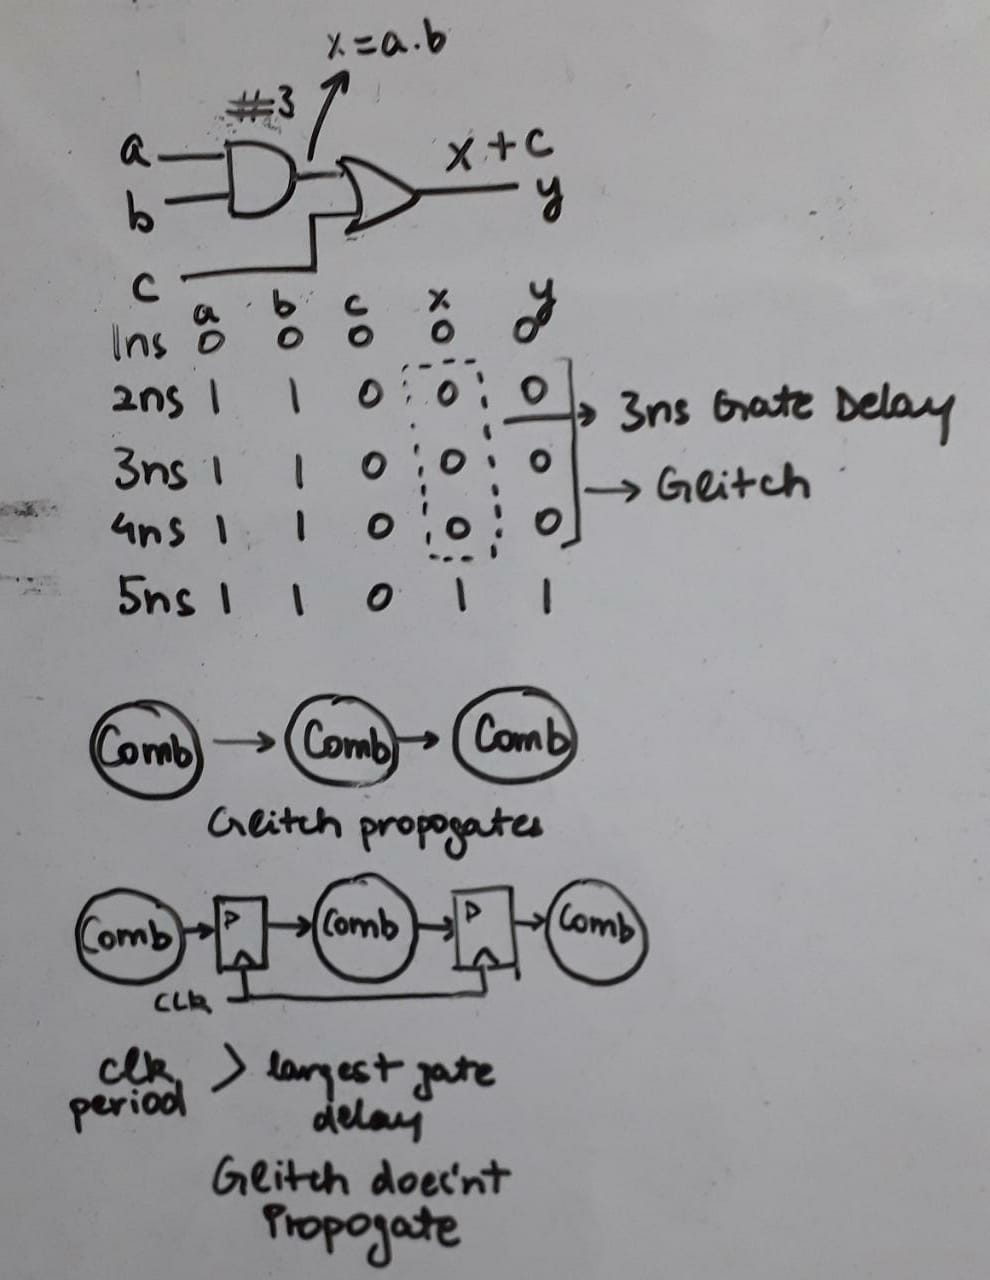 x=a.b
#3
a
b
c
x+c
y
a b c x y
1ns 0 0 0 0 0
2ns 1 1 0 0 0
3ns 1 1 0 0 0
4ns 1 1 0 0 0
5ns 1 1 0 1 1
→ 3ns Gate Delay
→ Glitch
Comb → Comb → Comb
Glitch propogates
Comb → D → Comb → D → Comb
CLK
clk > largest gate
period delay
Glitch does'nt
Propogate